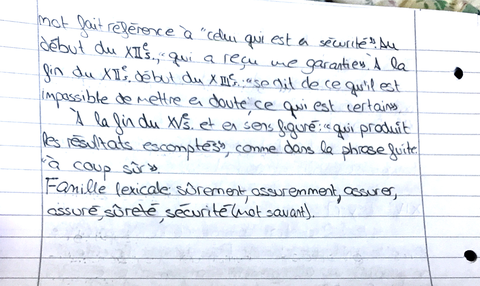 mot fait référence à "celui qui est en sécurité". Au
début du XIIᵉs., "qui a reçu une garantie". À la
fin du XIIᵉs. début du XIIIᵉs., "se dit de ce qu'il est
impossible de mettre en doute, ce qui est certain".
À la fin du XVᵉs. et en sens figuré: "qui produit
les résultats escomptés", comme dans la phrase faite
"à coup sûr".
Famille lexicale: sûrement, assuremment, assurer,
assuré, sûreté, sécurité (mot savant).